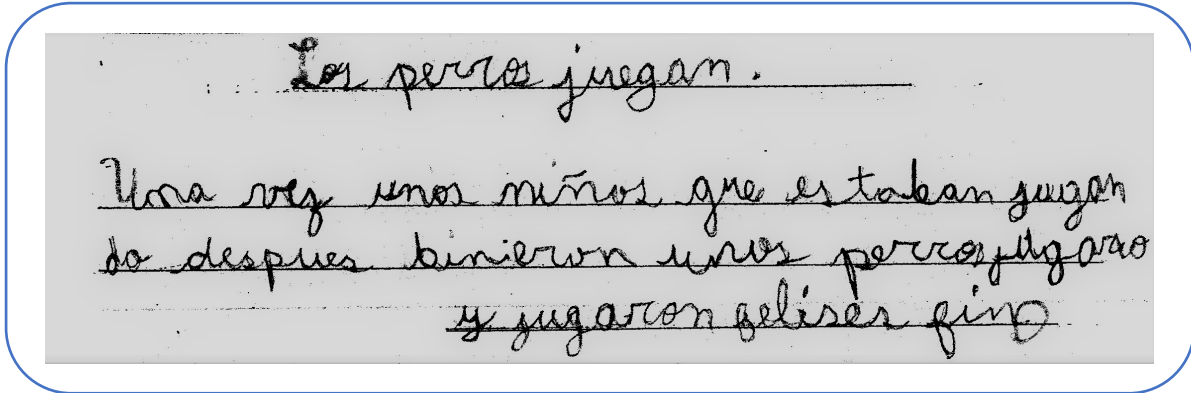 Los perros juegan.
Una vez unos niños que es taban jugan
do despues binieron unos perros jugaro
y jugaron felises fin